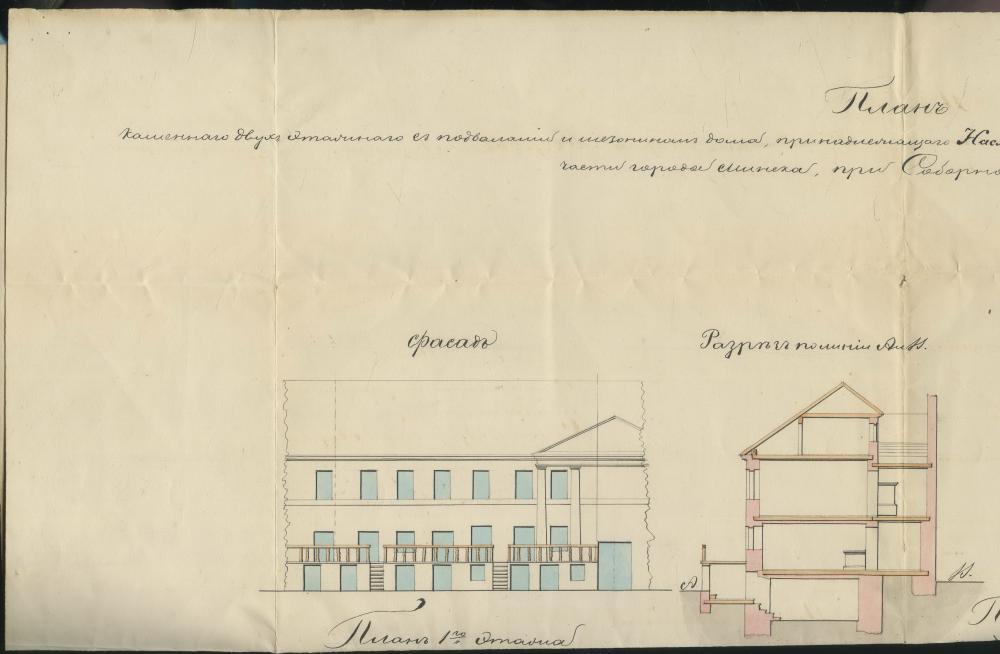 Планъ
Каменнаго двухъ этажнаго съ подваломъ и мезониномъ дома, принадлежащаго Нас
части города Минска, при Соборно
Фасадъ
Разрѣзъ по линіи А и В.
А
В.
Планъ 1го этажа
П